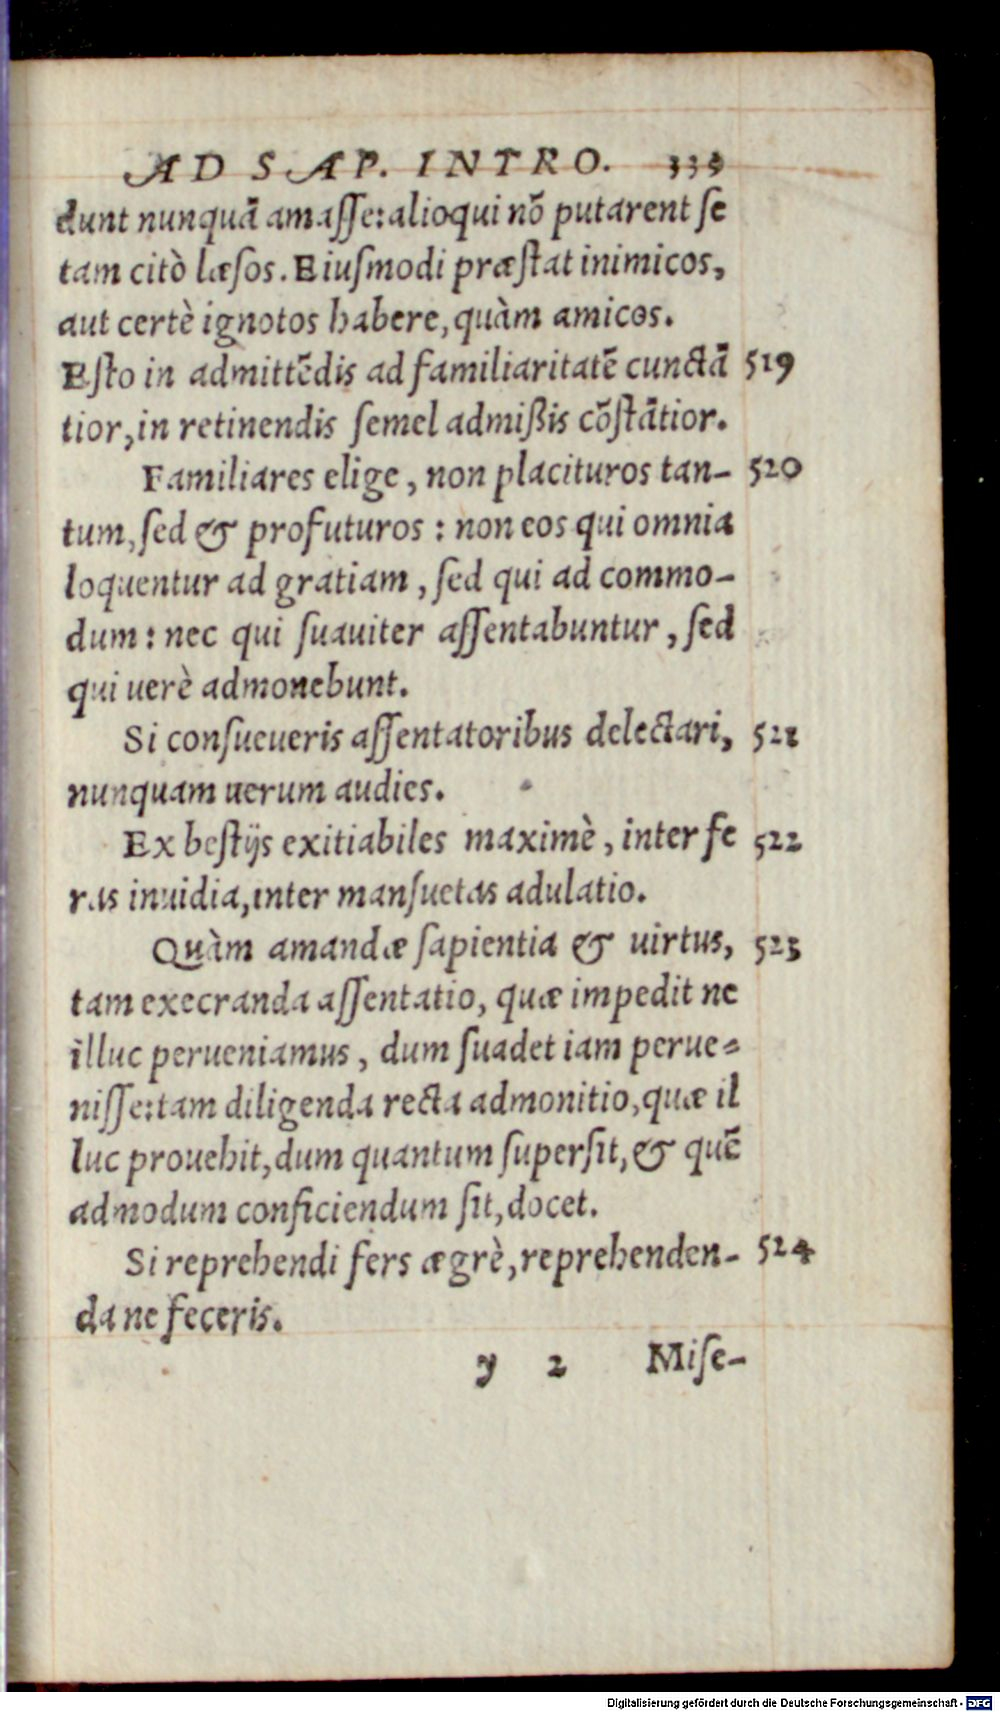 AD SAP. INTRO. 339
dunt nunquã amaſſe: alioqui nõ putarent ſe
tam citò læſos. Eiuſmodi præſtat inimicos,
aut certè ignotos habere, quàm amicos.
Eſto in admittẽdis ad familiaritatẽ cunctã 519
tior, in retinendis ſemel admißis cõſtãtior.
Familiares elige, non placituros tan- 520
tum, ſed & profuturos: non eos qui omnia
loquentur ad gratiam, ſed qui ad commo-
dum: nec qui ſuauiter aſſentabuntur, ſed
qui uerè admonebunt.
Si conſueueris aſſentatoribus delectari, 521
nunquam uerum audies.
Ex beſtijs exitiabiles maximè, inter fe 522
ras inuidia, inter manſuetas adulatio.
Quàm amandæ ſapientia & uirtus, 523
tam execranda aſſentatio, quæ impedit ne
illuc perueniamus, dum ſuadet iam perue=
niſſe: tam diligenda recta admonitio, quæ il
luc prouehit, dum quantum ſuperſit, & quẽ
admodum conficiendum ſit, docet.
Si reprehendi fers ægrè, reprehenden- 524
da ne feceris.
y 2 Miſe-
Digitalisierung gefördert durch die Deutsche Forschungsgemeinschaft - DFG